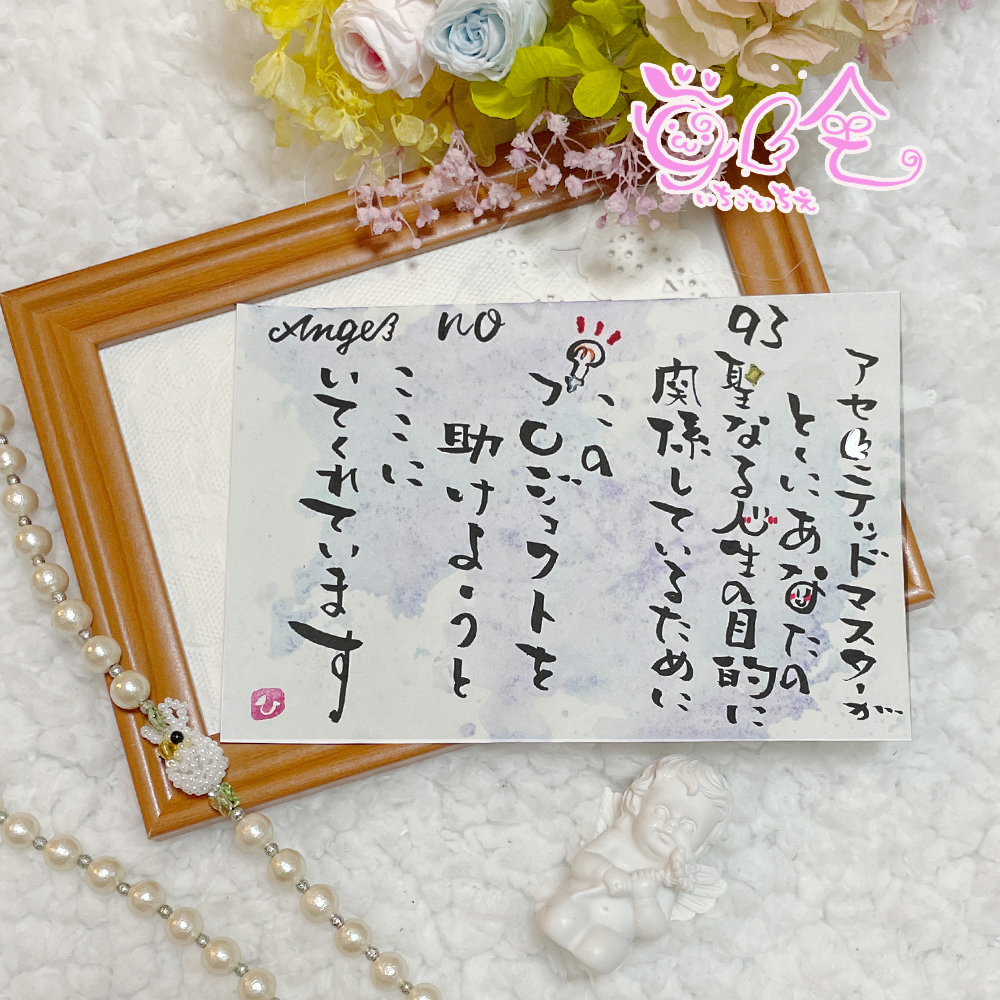 Angel NO
93
アセンテッドマスターが
とくにあなたの
聖なる人生の目的に
関係しているために
この
プロジェクトを
助けようと
ここに
いてくれています
いちごいちえ